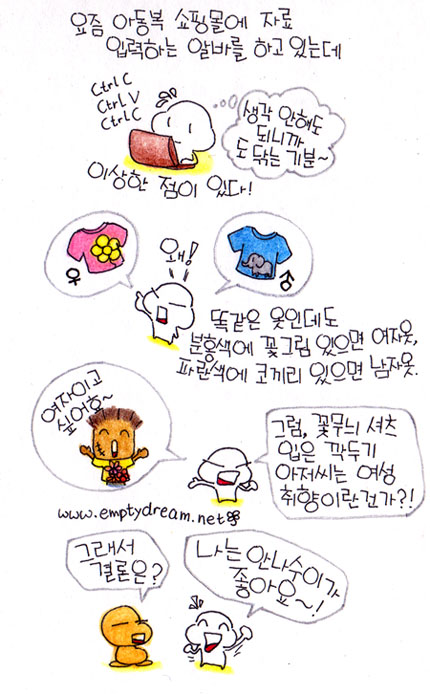 요즘 아동복 쇼핑몰에 자료
입력하는 알바를 하고 있는데
Ctrl C
Ctrl V
Ctrl C
생각 안해도
되니까
도 닦는 기분~
이상한 점이 있다!
♀
왜!
♂
똑같은 옷인데도
분홍색에 꽃그림 있으면 여자옷,
파란색에 코끼리 있으면 남자옷.
여자이고
싶어호~
그럼, 꽃무늬 셔츠
입은 깍두기
아저씨는 여성
취향이란건가?!
www.emptydream.net
그래서
결론은?
나는 안나수이가
좋아요~!